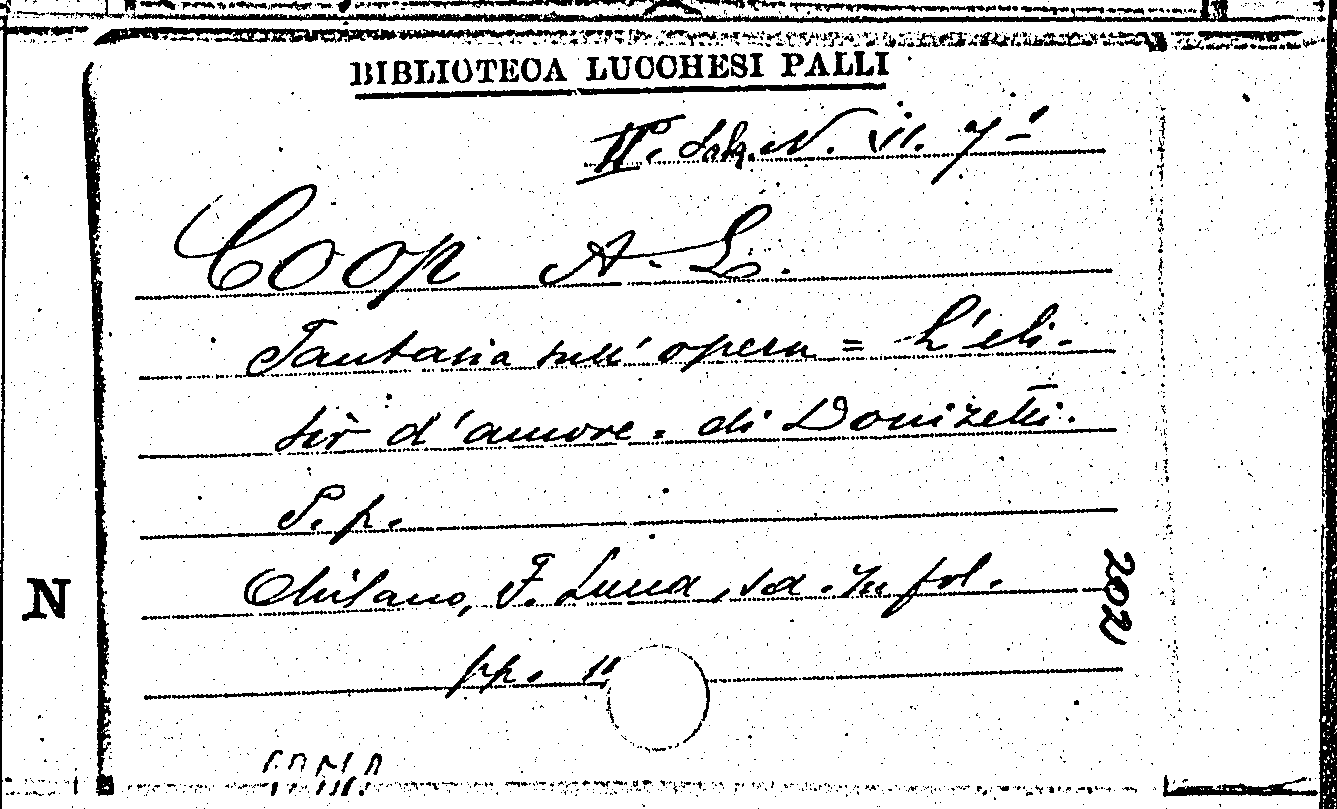 BIBLIOTECA LUCCHESI PALLI
II. Sala. N. VII. 7-1
Coop A. L.
Fantasia sull' opera = L'eli-
sir d'amore. di Donizetti.
P. p.
Milano, F. Lucca, s d. In fol.
pp. 11
N
202